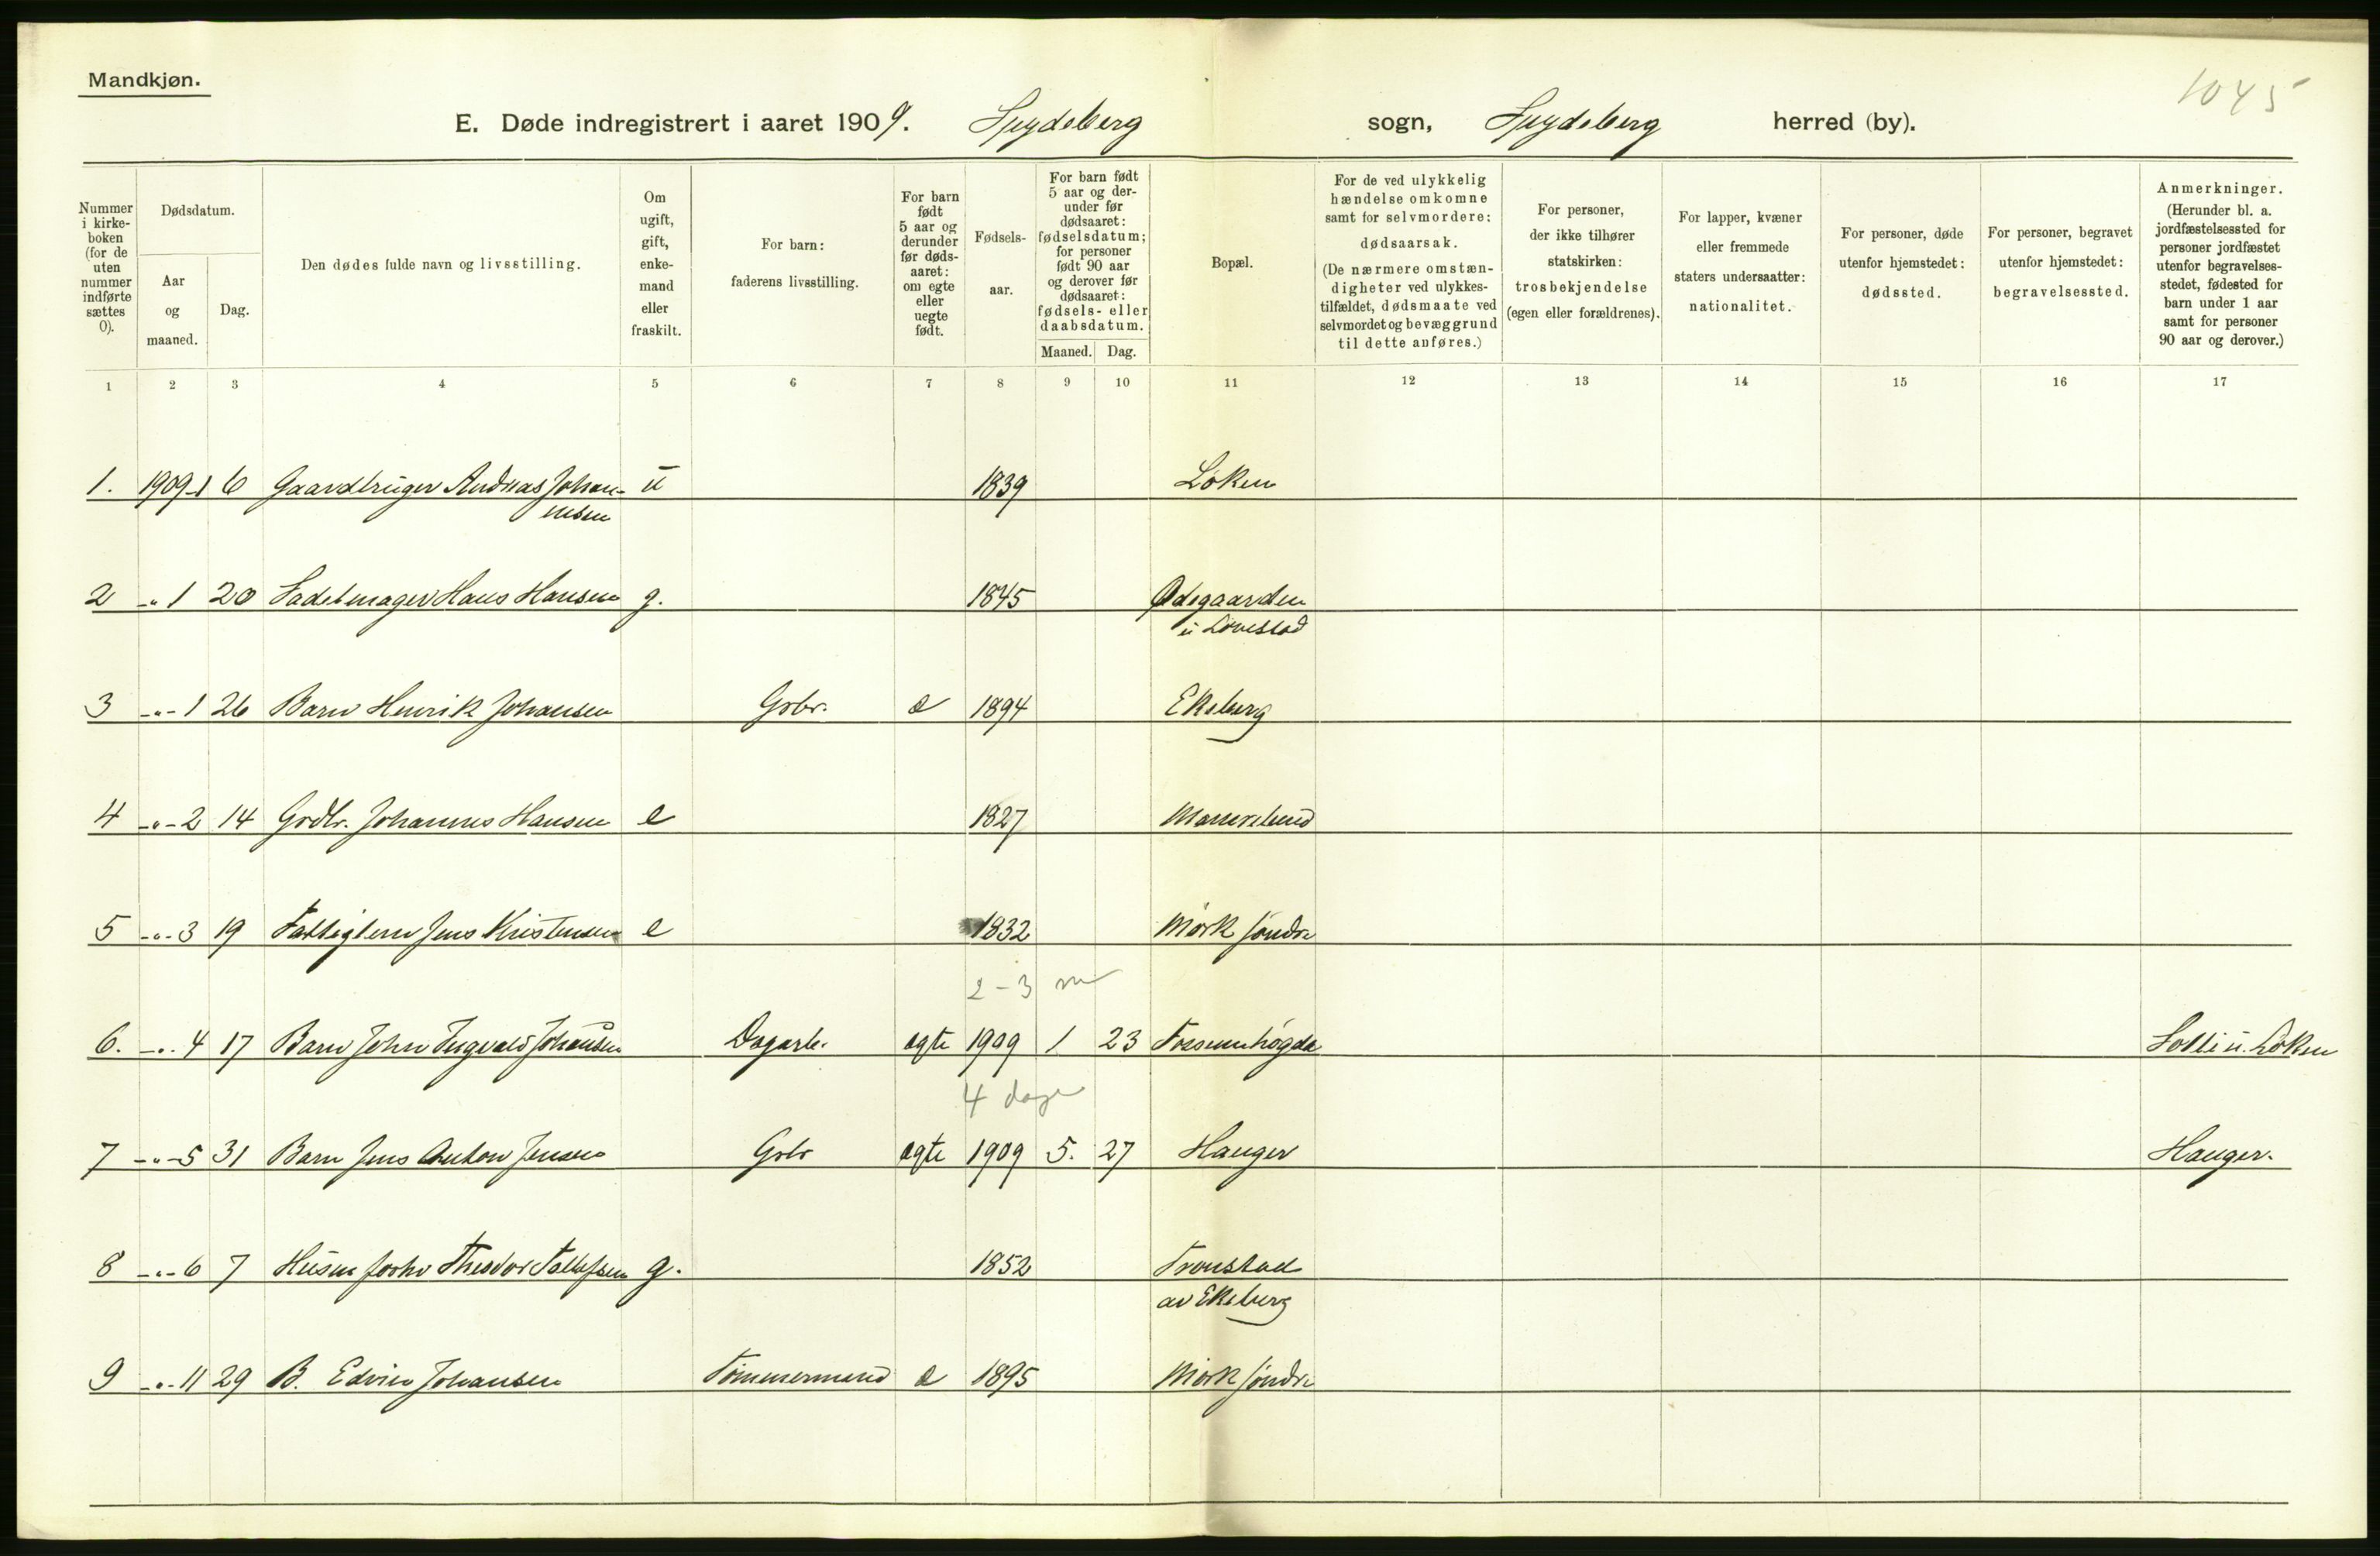 Mandkjøn.
1045
E. Døde indregistrert i aaret 1909. Spydeberg sogn, Spydeberg herred (by).
Nummer i kirke-boken (for de uten nummer indførte sættes 0).
Dødsdatum.
Aar og maaned.
Dag.
Den dødes fulde navn og livsstilling.
Om ugift, gift, enke-mand eller fraskilt.
For barn: faderens livsstilling.
For barn født 5 aar og derunder før døds-aaret: om egte eller uegte født.
Fødsels-aar.
For barn født 5 aar og der-under før dødsaaret: fødselsdatum; for personer født 90 aar og derover før dødsaaret: fødsels- eller daabsdatum.
Maaned. Dag.
Bopæl.
For de ved ulykkelig hændelse omkomne samt for selvmordere: dødsaarsak. (De nærmere omstæn-digheter ved ulykkes-tilfældet, dødsmaate ved selvmordet og bevæggrund til dette anføres.)
For personer, der ikke tilhører statskirken: trosbekjendelse (egen eller forældrenes).
For lapper, kvæner eller fremmede staters undersaatter: nationalitet.
For personer, døde utenfor hjemstedet: dødssted.
For personer, begravet utenfor hjemstedet: begravelsessted.
Anmerkninger. (Herunder bl. a. jordfæstelsessted for personer jordfæstet utenfor begravelses-stedet, fødested for barn under 1 aar samt for personer 90 aar og derover.)
1 2 3 4 5 6 7 8 9 10 11 12 13 14 15 16 17
1. 1909-1 6 Gaardbruger Andreas Johan- u 1839 Løken
nesen
2 -"- 1 20 Sadelmager Hans Hansen g. 1845 Ødegaarden
u Lovestad
3 -"- 1 26 Barn Henrik Johansen Gbr. e 1894 Ekeberg
4 -"- 2 14 Grdbr. Johannes Hansen e 1827
5 -"- 3 19 Fattiglem Jens Kristensen e 1832 Mörk söndre
2-3 m
6. -"- 4 17 Barn John Ingvald Johansen Dagarb. egte 1909 1 23 Fossumhøgda Solli u. Løken
4 dage
7 -"- 5 31 Barn Jens Anton Jensen Gbr egte 1909 5. 27 Hauger Hauger.
8 -"- 6 7 Husm Theodor g. 1852 Tronstad
av Ekeberg
9 -"- 11 29 B. Edvin Johansen Tømmermand e 1895 Mörk söndre